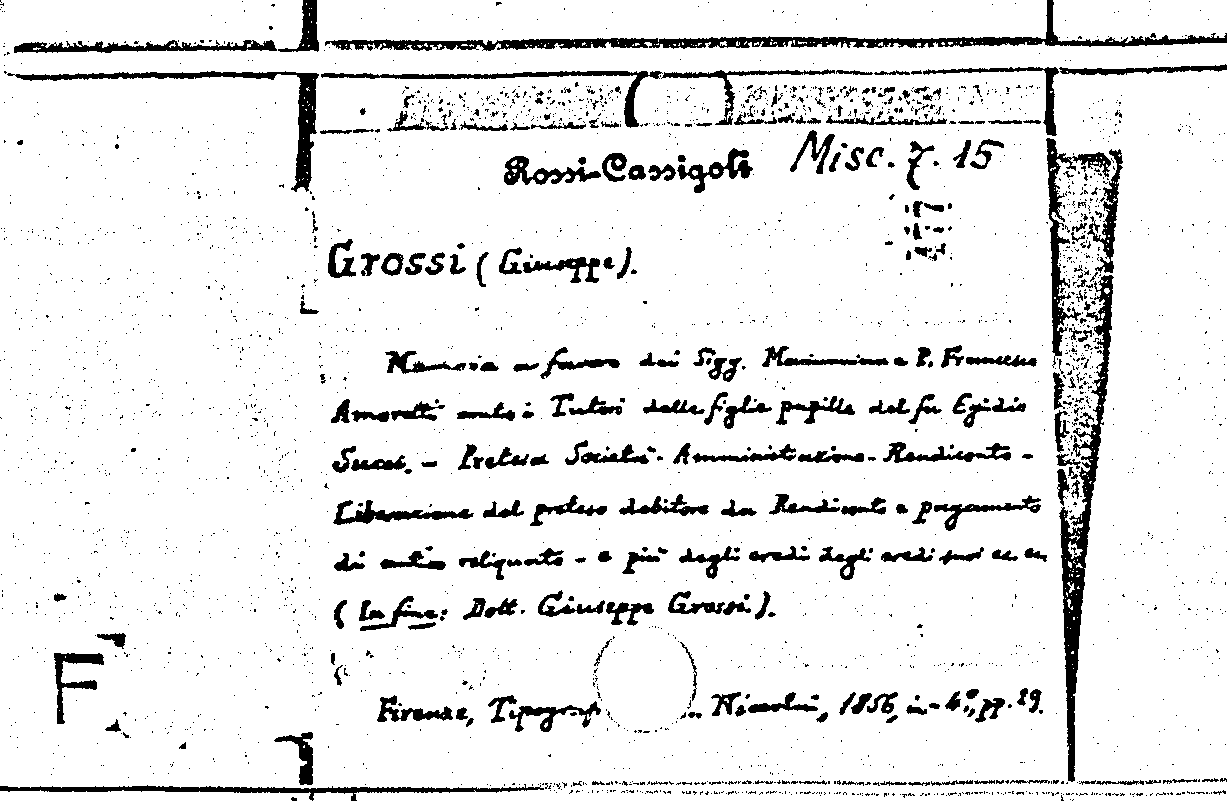 Rossi-Cassigoli Misc. 7. 15
Grossi (Giuseppe).
Memoria a favore dei Sigg. Marianna e P. Francesco
Amoretti Tutori delle figlie pupille del fu Egidio
Succi. - Pretesa Società - Amministrazione - Rendiconto -
Liberazione del preteso debitore da Rendiconto e pagamento
di antico reliquato - e più degli eredi degli eredi suoi ec. ec.
(In fine: Dott. Giuseppe Grossi.).
Firenze, Tipograf Niccolai, 1856, in-4°, pp. 29.
F